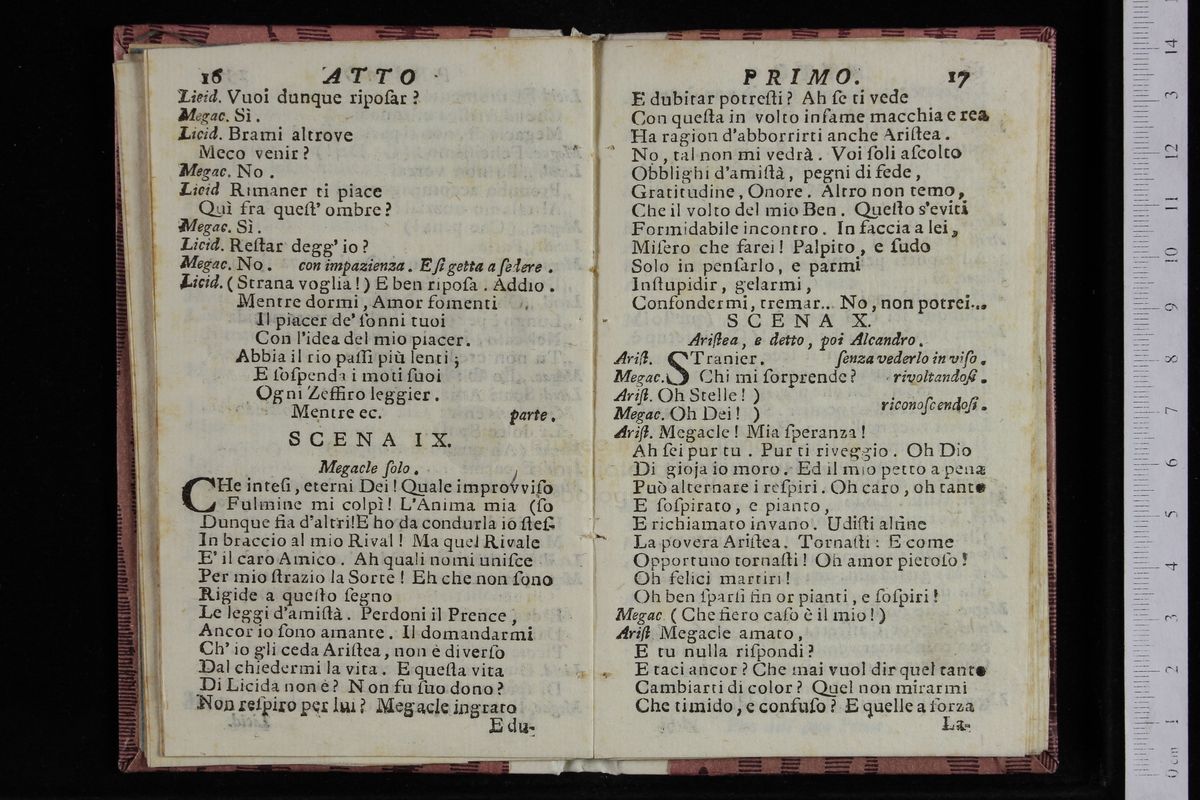 16 ATTO
Licid. Vuoi dunque ripoſar ?
Megac. Sì .
Licid. Brami altrove
Meco venir ?
Megac. No .
Licid Rimaner ti piace
Quì fra queſt' ombre ?
Megac. Sì .
Licid. Reſtar degg' io ?
Megac. No . con impazienza . E ſi getta a ſedere .
Licid. ( Strana voglia ! ) E ben ripoſa . Addio .
Mentre dormi , Amor fomenti
Il piacer de' ſonni tuoi
Con l'idea del mio piacer .
Abbia il rio paſſi più lenti ;
E ſoſpenda i moti ſuoi
Ogni Zeffiro leggier .
Mentre ec. parte .
SCENA IX.
Megacle ſolo .
CHe inteſi , eterni Dei ! Quale improvviſo
Fulmine mi colpì ! L'Anima mia (ſo
Dunque fia d'altri!E ho da condurla io ſteſ-
In braccio al mio Rival ! Ma quel Rivale
E' il caro Amico . Ah quali nomi uniſce
Per mio ſtrazio la Sorte ! Eh che non ſono
Rigide a queſto ſegno
Le leggi d'amiſtà . Perdoni il Prence ,
Ancor io ſono amante . Il domandarmi
Ch' io gli ceda Ariſtea , non è diverſo
Dal chiedermi la vita . E queſta vita
Di Licida non è ? Non fu ſuo dono ?
Non reſpiro per lui ? Megacle ingrato
E du-
PRIMO. 17
E dubitar potreſti ? Ah ſe ti vede
Con queſta in volto infame macchia e rea
Ha ragion d'abborrirti anche Ariſtea .
No , tal non mi vedrà . Voi ſoli aſcolto
Obblighi d'amiſtà , pegni di fede ,
Gratitudine , Onore . Altro non temo ,
Che il volto del mio Ben . Queſto s'eviti
Formidabile incontro . In faccia a lei ,
Miſero che farei ! Palpito , e ſudo
Solo in penſarlo , e parmi
Inſtupidir , gelarmi ,
Confondermi , tremar... No , non potrei...
SCENA X.
Ariſtea , e detto , poi Alcandro .
Ariſt. STranier . ſenza vederlo in viſo .
Megac. Chi mi ſorprende ? rivoltandoſi .
Ariſt. Oh Stelle ! )
Megac. Oh Dei ! ) riconoſcendoſi .
Ariſt. Megacle ! Mia ſperanza !
Ah ſei pur tu . Pur ti riveggio . Oh Dio
Di gioja io moro . Ed il mio petto a pena
Può alternare i reſpiri . Oh caro , oh tanto
E ſoſpirato , e pianto ,
E richiamato invano . Udiſti alfine
La povera Ariſtea . Tornaſti : E come
Opportuno tornaſti ! Oh amor pietoſo !
Oh felici martiri !
Oh ben ſparſi fin or pianti , e ſoſpiri !
Megac ( Che fiero caſo è il mio ! )
Ariſt Megacle amato ,
E tu nulla riſpondi ?
E taci ancor ? Che mai vuol dir quel tanto
Cambiarti di color ? Quel non mirarmi
Che timido , e confuſo ? E quelle a forza
La-
0 cm 1 2 3 4 5 6 7 8 9 10 11 12 3 14